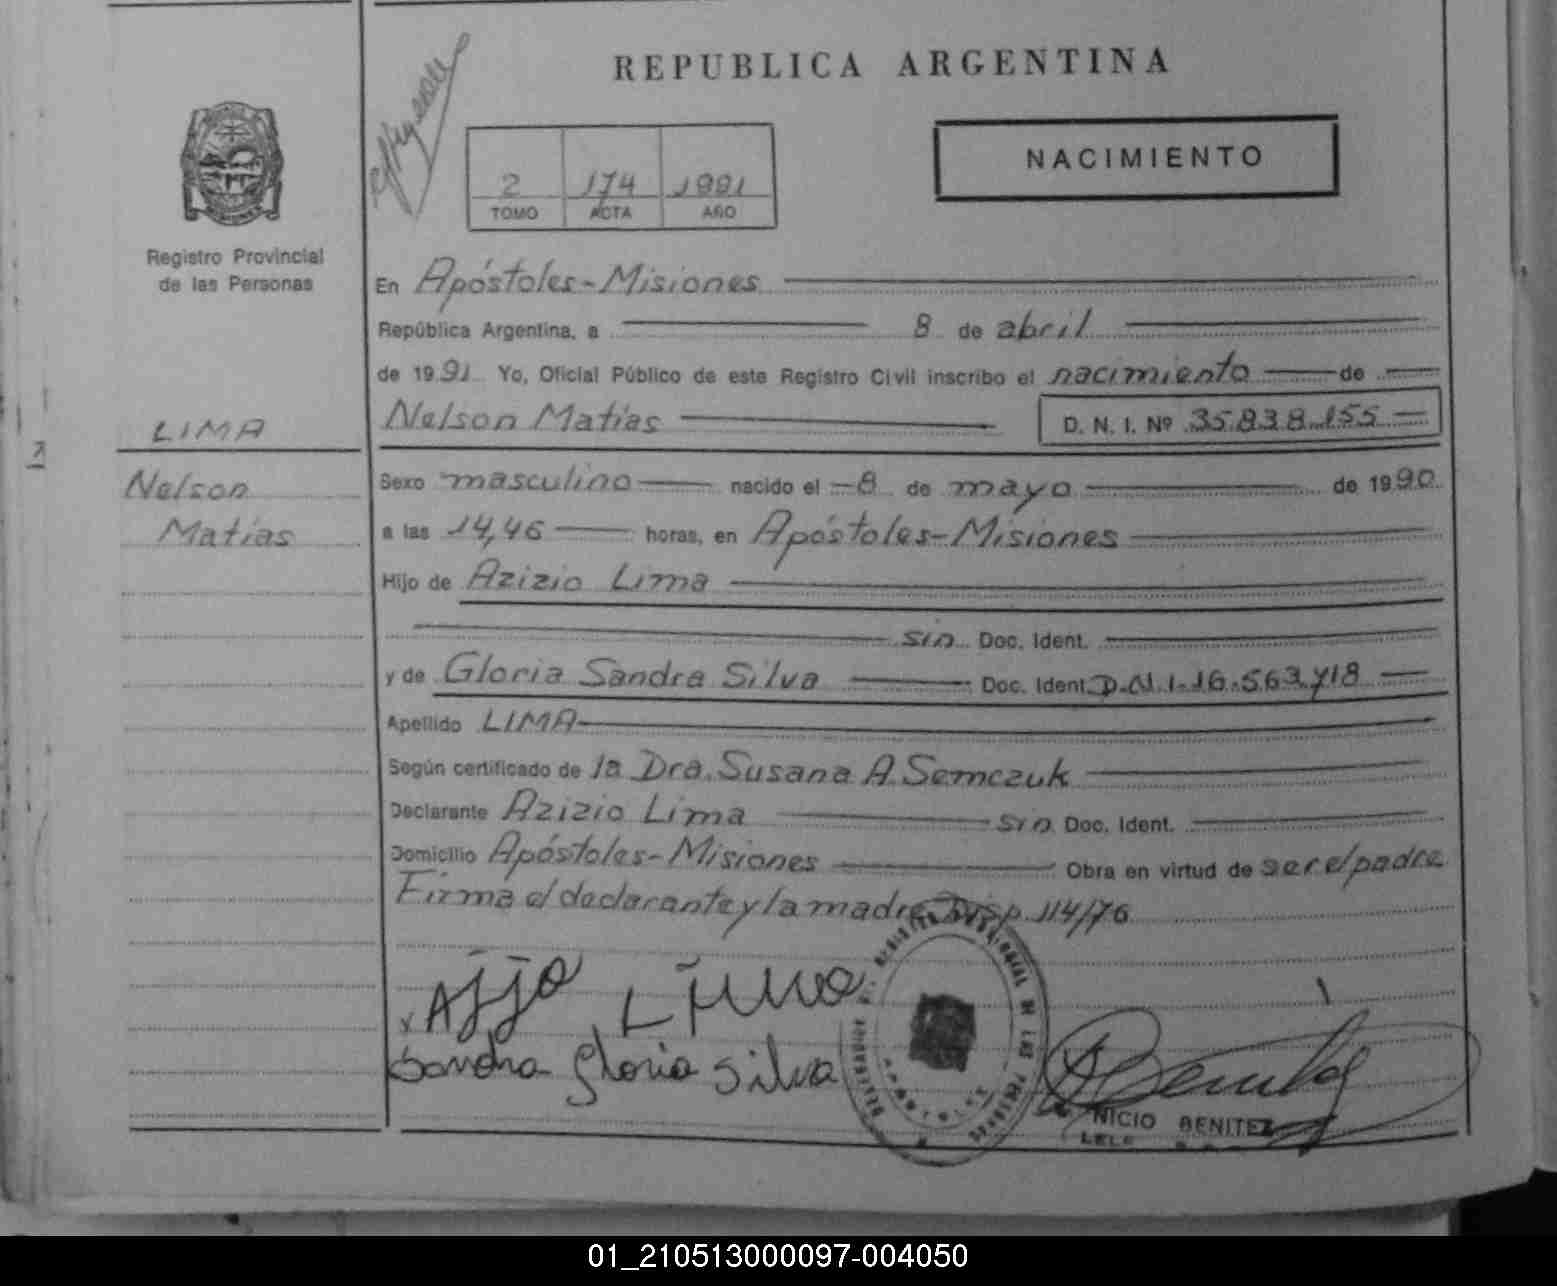 REPUBLICA ARGENTINA
NACIMIENTO
2 174 1991
TOMO ACTA AÑO
Registro Provincial
de las Personas
LIMA
Nelson
Matías
En Apóstoles-Misiones
República Argentina, a 8 de abril
de 1991 Yo, Oficial Público de este Registro Civil inscribo el nacimiento de
Nelson Matías D. N. I. Nº 35.838.155
Sexo masculino nacido el 8 de mayo de 1990
a las 14,46 horas, en Apóstoles-Misiones
Hijo de Azizio Lima
sin Doc. Ident.
y de Gloria Sandra Silva Doc. Ident. D.N.I. 16.563.718
Apellido LIMA
Según certificado de la Dra. Susana A. Semczuk
Declarante Azizio Lima sin Doc. Ident.
Domicilio Apóstoles-Misiones Obra en virtud de ser el padre
Firma el declarante y la madre Disp. 114/76
Lima
Sandra Gloria Silva
REGISTRO PROVINCIAL DE LAS PERSONAS
APOSTOLES
NICIO BENITEZ
01_210513000097-004050